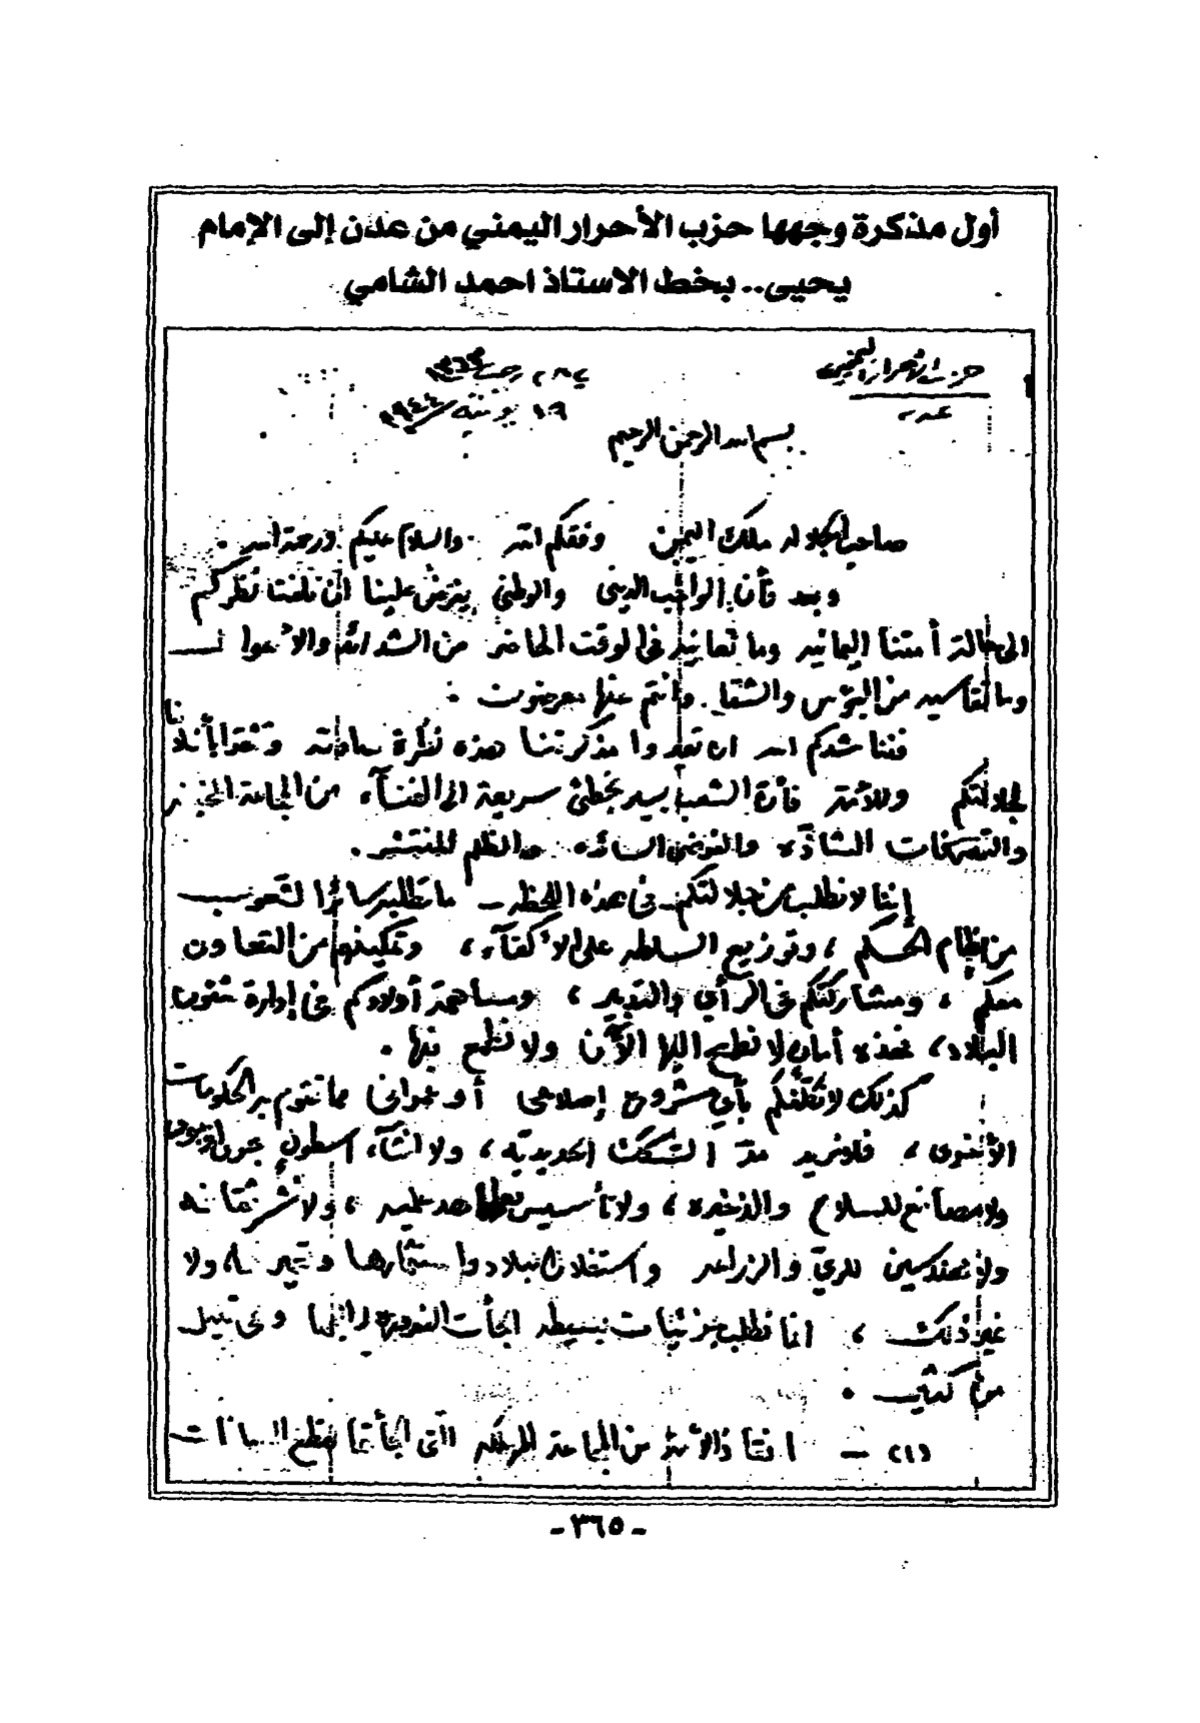 أول مذكرة وجهها حزب الأحرار اليمني من عدن إلى الإمام
يحيى.. بخط الاستاذ احمد الشامي
حزب الأحرار اليمني
عدن
٢٨ رجب ١٣٦٣
١٩ يونيه ١٩٤٤
بسم الله الرحمن الرحيم
صاحب الجلالة ملك اليمن وفقكم الله والسلام عليكم ورحمة الله .
وبعد فأن الواجب الديني والوطني يفرض علينا ان نلفت نظركم
الى حالة أمتنا اليمانيه وما تعانيه في الوقت الحاضر من الشدائد والأهوال
وما تقاسيه من البؤس والشقاء وانتم عنها معرضون .
فنناشدكم الله ان تعيروا مذكرتنا هذه نظرة صادقه وتثقوا بأننا
لجلالتكم وللأمة فأن الشعب يسير بخطى سريعة الى الفنآء من المجاعة
والتصرفات الشاذه والفوضى السائده والظلم المنتشر .
إننا لا نطلب من جلالتكم في هذه اللحظه ما تطلبه سائر الشعوب
من نظام الحكم ، وتوزيع السلطه على الأكفآء ، وتمكينهم من التعاون
معكم ، ومشاركتكم في الرأي والتدبير ، ومساهمة أولادكم في إدارة شئون
البلاد ، فهذه أمان لا نطمح اليها الآن ولا نطمع فيها .
كذلك لا نكلفكم بأي مشروع إصلاحي أو عمراني مما تقوم به الحكومات
الأخرى ، فلا نريد مد السكك الحديدية ، ولا انشآء اسطول
ولا مصانع للسلاح والذخيره ، ولا تأسيس معاهد علميه ، ولا نشر ثقافه
ولا مهندسين للري والزراعه واستغلال البلاد واستثمارها ولا
غير ذلك ، انما نطلب جزئيات بسيطه الجأت الضرورة إليها وهي قليل
من كثير .
(١) - انقاذ الأمة من المجاعة المهلكه التي الجأتها
- ٣٦٥ -